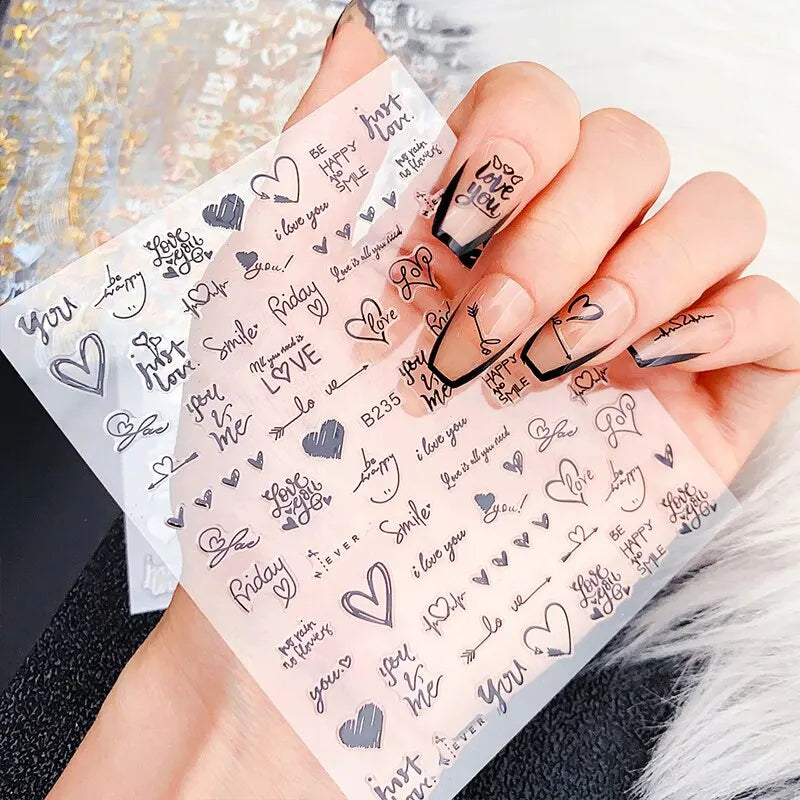 just
love.
BE
HAPPY
no
SMILE
no rain
no flowers
love
you
i love you
Love
you
you!
Love is all you need
be
happy
you
Friday
Smile
love
just
love.
All you need is
LOVE
you
&
me
lo ve
B235
you
&
me
HAPPY
SMILE
i love you
be
happy
Love is all you need
Love
you
Smile
you!
love
be
happy
Love
you
NEVER
i love you
BE
HAPPY
no
SMILE
Friday
lo ve
Love
you
no rain
no flowers
you
&
me
you.
you
EVER
just
love.